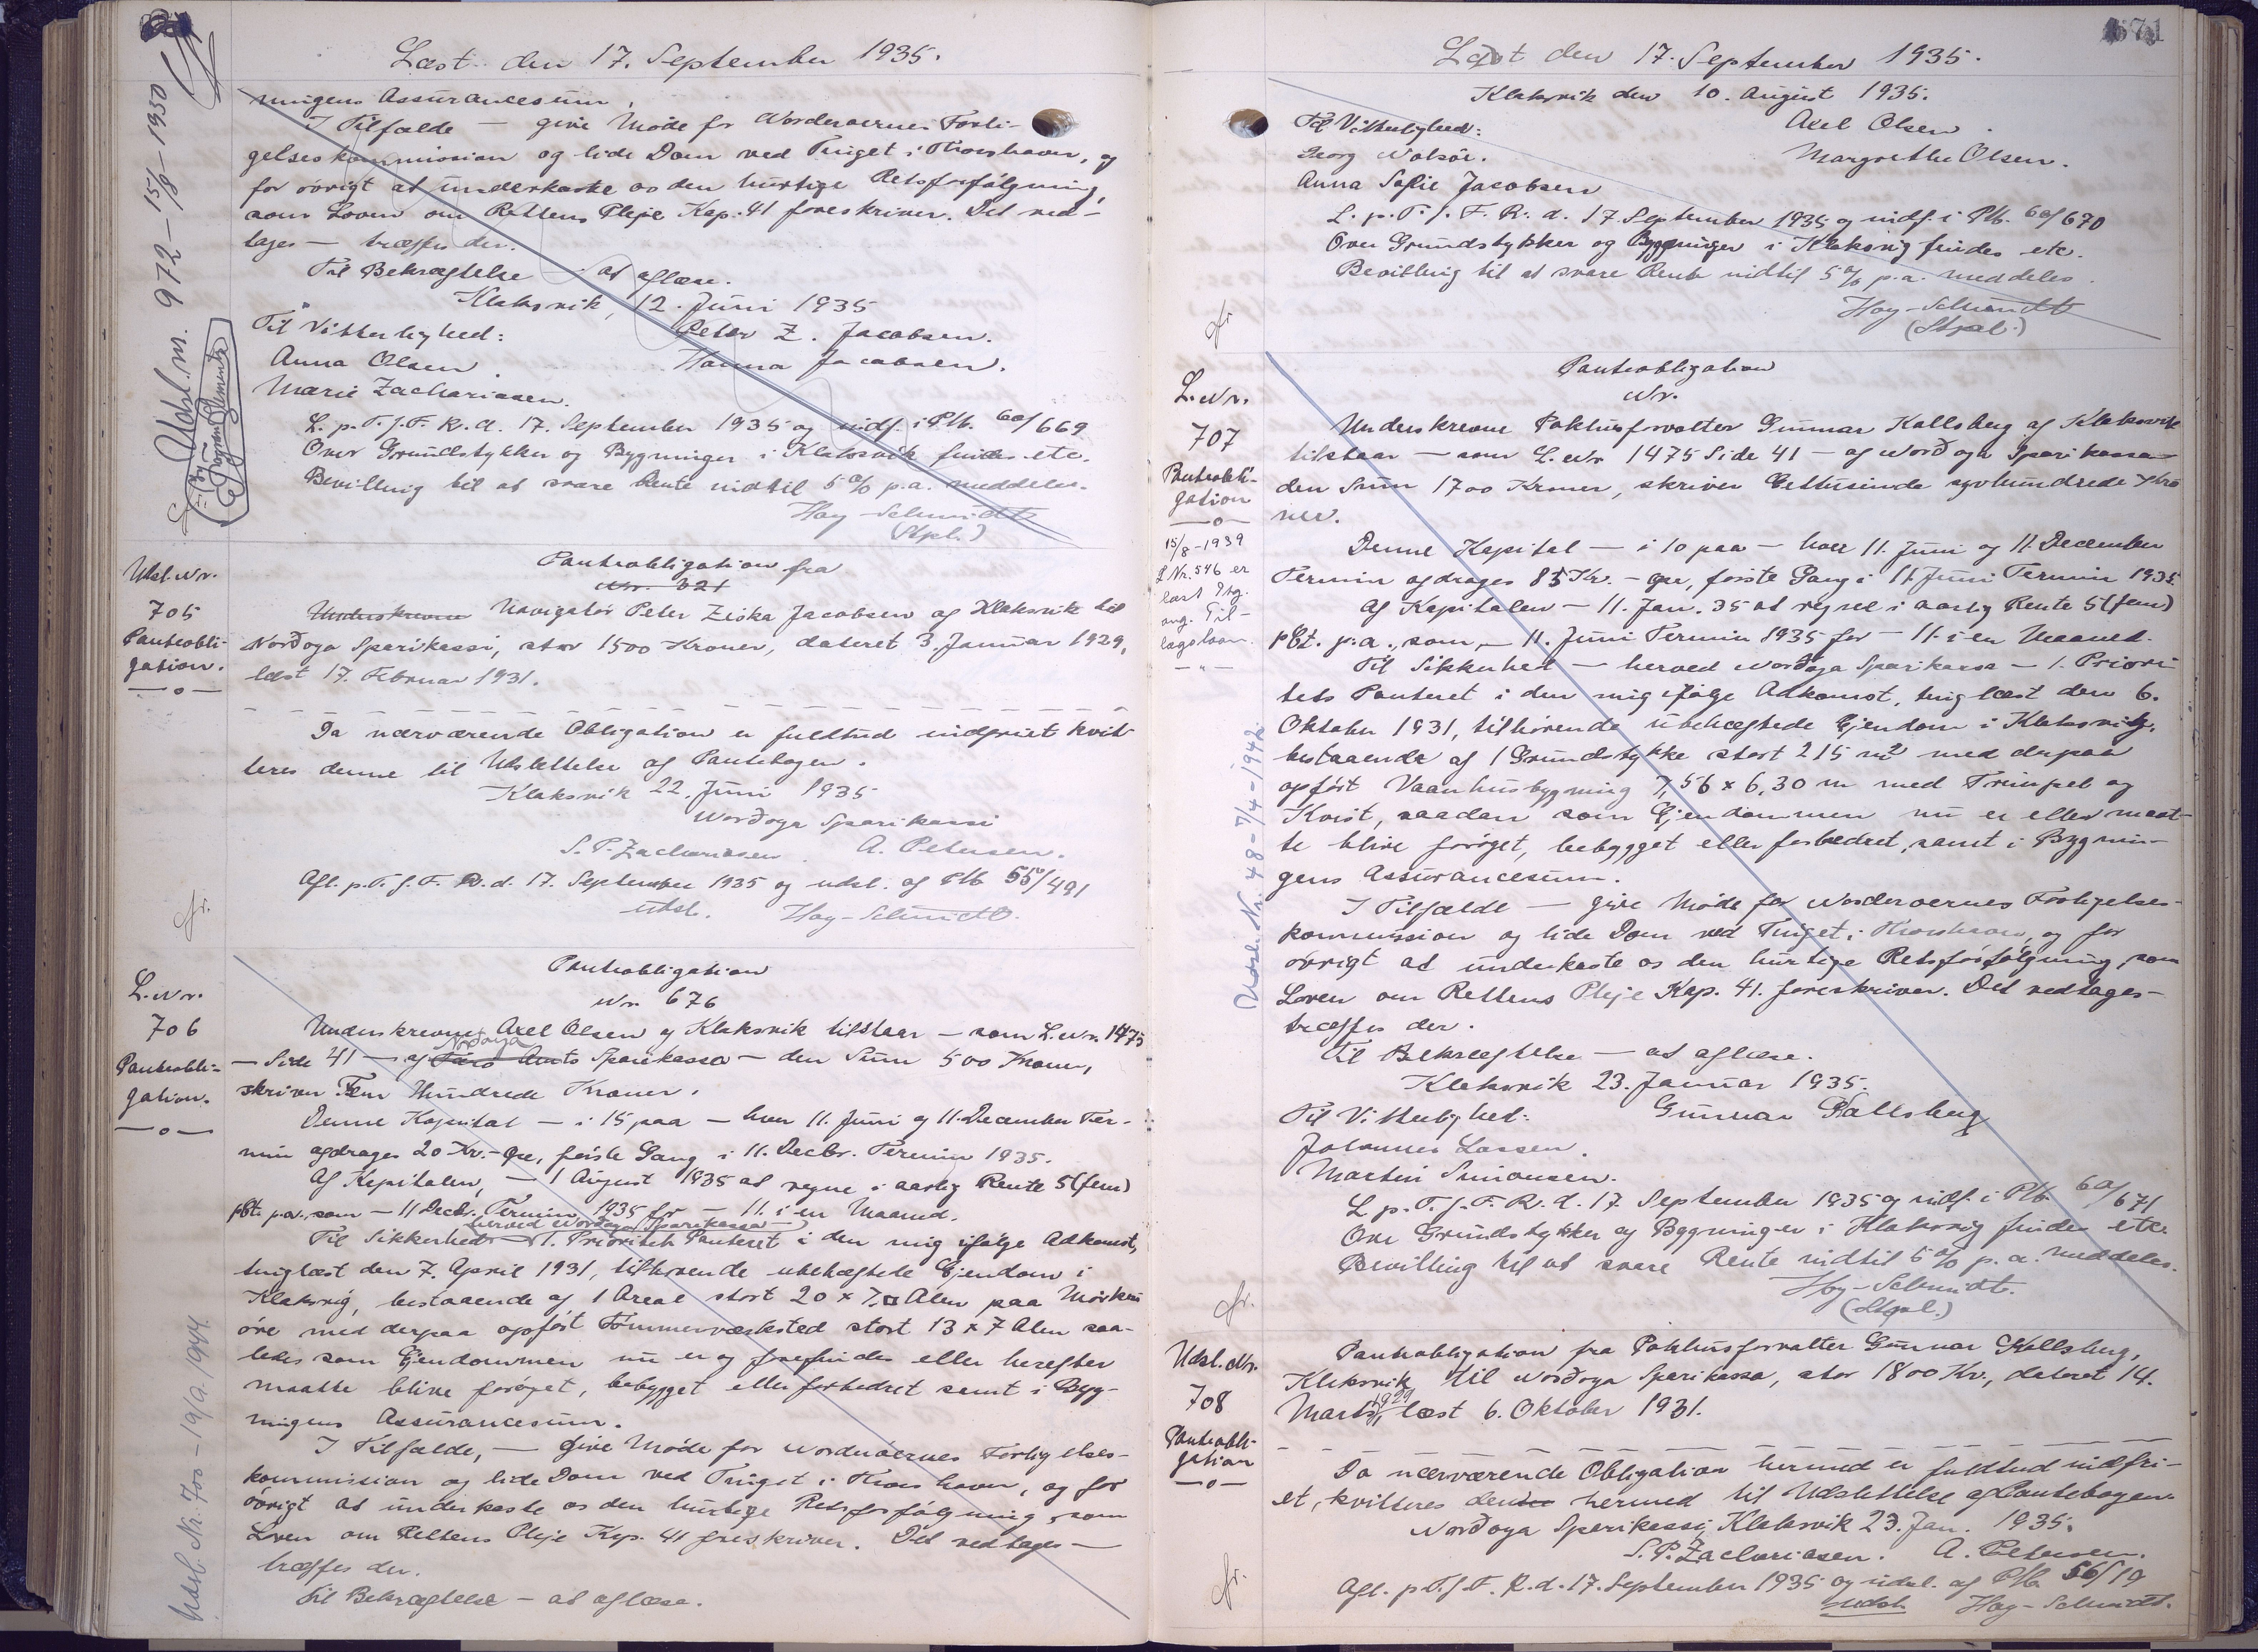 Læst den 17. September 1935.
ningens Assurancesum,
I Tilfælde — give Møde for Norderøernes Forli-
gelseskommission og lide Dom ved Tinget i Thorshavn, og
for övrigt at underkaste os den hurtige Retsforfölgning,
som Loven om Rettens Pleje Kap. 41 foreskriver. Det ved-
tages — træffes der.
Til Bekræftelse — at aflæse.
Klaksvik, 12. Juni 1935
Til Vitterlighed: Peter Z. Jacobsen.
Anna Olsen. Hanna Jacobsen.
Marie Zachariasen.
L. p. T. f. F. R. d. 17. September 1935 og indf. i Ptb. 60/669
Over Grundstykker og Bygninger i Klaksvik findes etc.
Bevilling til at svare Rente indtil 5% p.a. meddeles.
Hoy-Schmidt
(Stpl.)
Udsl. m. 972 - 15/8 - 1950
Udsl. Nr.
705
Panteobli-
gation.
—o—
Panteobligation fra
Nr. 321
Underskrevne Navigatör Peter Ziska Jacobsen af Klaksvik til
Norðoya Sparikassi, stor 1500 Kroner, dateret 3. Januar 1929,
læst 17. Februar 1931.
Da nærværende Obligation er fuldtud indfriet kvit-
teres denne til Udslettelse af Pantebogen.
Klaksvik 22. Juni 1935
Norðoya Sparikassi
S. P. Zachariasen. A. Petersen.
Afl. p. T. f. F. R. d. 17. September 1935 og udsl. af Ptb 55/491
udsl. Hoy-Schmidt.
L. Nr.
706
Panteobli-
gation.
—o—
Panteobligation
Nr. 676
Underskrevne Axel Olsen af Klaksvik tilstaar — som L. Nr. 1475
Norðoya
— Side 41 — af Færø Amts Sparikassa — den Sum 500 Kroner,
skriver Fem Hundrede Kroner.
Denne Kapital — i 15 paa — hver 11. Juni og 11. December Ter-
min afdrages 20 Kr. - Øre, förste Gang i 11. Decbr. Termin 1935.
Af Kapitalen, — 1 August 1935 at regne i aarlig Rente 5 (fem)
pCt. p.a., som — 11 Decbr. Termin 1935 for — 11. i en Maaned.
herved Norðoya Sparikassa —
Til Sikkerhed — 1. Prioritets Panteret i den mig ifølge Adkomst,
tinglæst den 7. April 1931, tilhørende ubehæftede Ejendom i
Klaksvig, bestaaende af 1 Areal stort 20 x 7 □ Alen paa
øre med derpaa opfört Tömmerværksted stort 13 x 7 Alen saa-
ledes som Ejendommen nu er og forefindes eller herefter
maatte blive foröget, bebygget eller forbedret samt i Byg-
ningens Assurancesum.
I Tilfælde, — give Møde for Norderöernes Forligelses-
kommission og lide Dom ved Tinget i Thorshavn, og for
övrigt at underkaste os den hurtige Retsforfölgning som
Loven om Rettens Pleje Kap. 41 foreskriver. Det vedtages —
træffes der.
Til Bekræftelse — at aflæse.
Læst den 17. September 1935.
Klaksvik den 10. August 1935.
Til Vitterlighed: Axel Olsen.
Georg Nolsöe. Margrethe Olsen.
Anna Sofie Jacobsen
L. p. T. f. F. R. d. 17. September 1935 og indf. i Ptb. 60/670
Over Grundstykker og Bygninger i Klaksvig findes etc.
Bevilling til at svare Rente indtil 5% p.a. meddeles.
Hoy-Schmidt
(Stpl.)
L. Nr.
707
Panteobli-
gation
—o—
15/8-1939
L. Nr. 546 er
læst
ang. Til-
lægslaan.
Udsl. Nr. 48 - 7/4 - 1942.
Panteobligation
Nr.
Underskrevne Pakhusforvalter Gunnar Kallsberg af Klaksvik
tilstaar — som L. Nr 1475 Side 41 — af Norðoya Sparikassa
den Sum 1700 Kroner, skriver Ettusinde syvhundrede Kro
ner.
Denne Kapital — i 10 paa — hver 11. Juni og 11. December
Termin afdrages 85 Kr. - øre, förste Gang i 11. Juni Termin 1935.
Af Kapitalen — 11. Jan. 35 at regne i aarlig Rente 5 (fem)
pCt. p.a., som, — 11. Juni Termin 1935 for — 11. i en Maaned.
Til Sikkerhed — herved Norðoya Sparikassa — 1. Priori-
tets Panteret i den mig ifølge Adkomst, tinglæst den 6.
Oktober 1931, tilhørende ubehæftede Ejendom i Klaksvig,
bestaaende af 1 Grundstykke stort 215 m² med derpaa
opfört Vaanhusbygning 7,56 x 6,30 m med Trempel og
Kvist, saadan som Ejendommen nu er eller maat-
te blive foröget, bebygget eller forbedret, samt i Bygnin-
gens Assurancesum.
I Tilfælde — give Møde for Norderøernes Forligelses-
kommission og lide Dom ved Tinget i Thorshavn, og for
övrigt at underkaste os den hurtige Retsforfölgning som
Loven om Rettens Pleje Kap. 41. foreskriver. Det vedtages —
træffes der.
Til Bekræftelse — at aflæse.
Klaksvik 23. Januar 1935.
Til Vitterlighed: Gunnar Kallsberg
Johannes Lassen.
Martin Simonsen.
L. p. T. f. F. R. d. 17. September 1935 og indf. i Ptb. 60/671
Over Grundstykker og Bygninger i Klaksvig findes etc.
Bevilling til at svare Rente indtil 5% p.a. meddeles.
Hoy-Schmidt.
(Stpl.)
Udsl. Nr.
708
Panteobli-
gation
—o—
Panteobligation fra Pakhusforvalter Gunnar Kallsberg,
Klaksvik til Norðoya Sparikassa, stor 1800 Kr., dateret 14.
Marts 1929, læst 6. Oktober 1931.
Da nærværende Obligation hermed er fuldtud indfri-
et, kvitteres denne hermed til Udslettelse af Pantebogen.
Norðoya Sparikassi, Klaksvik 23. Jan. 1935.
S. P. Zachariasen. A. Petersen.
Afl. p. T. f. F. R. d. 17. September 1935 og udsl. af Ptb. 56/19
udsl. Hoy-Schmidt.